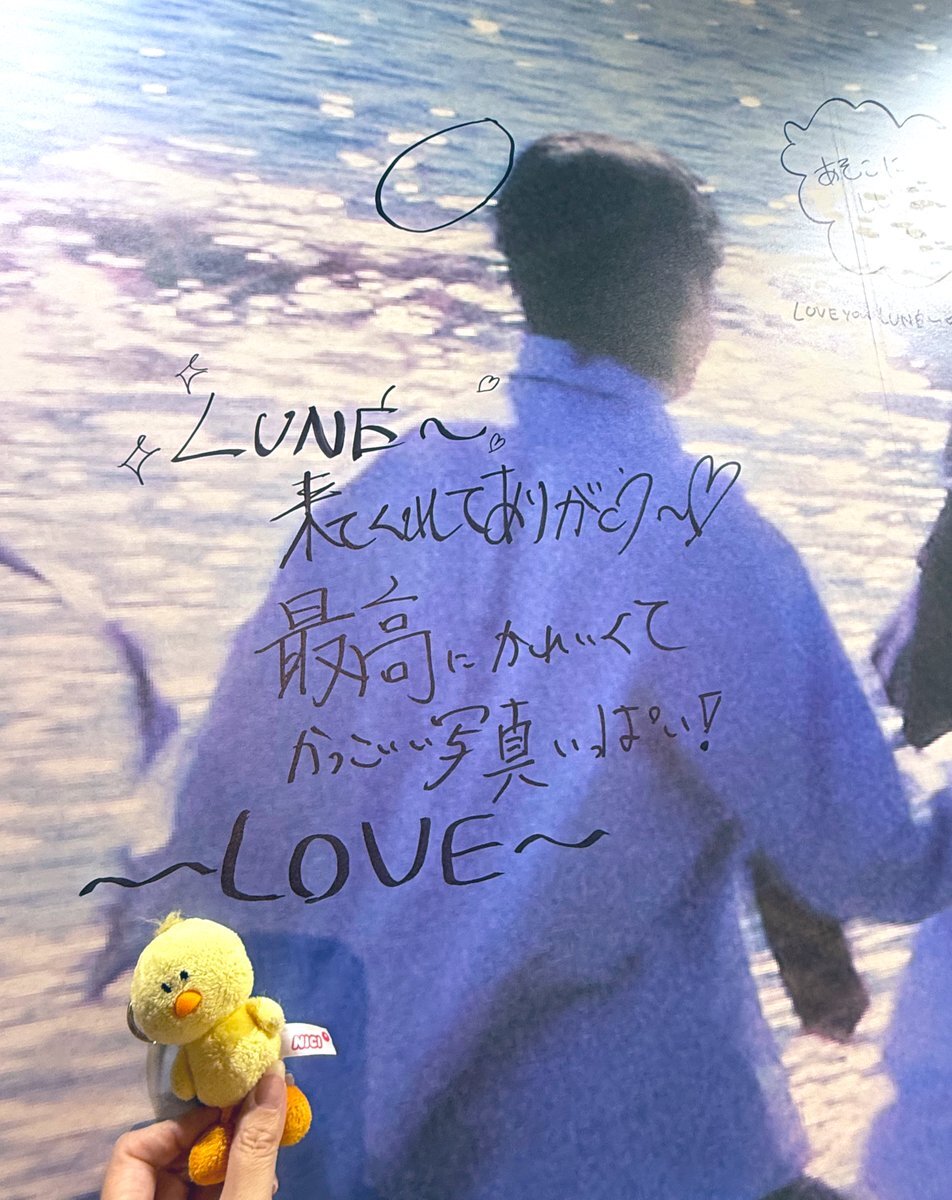 あそこに
LOVE YOU LUNÉ~
LUNÉ~
来てくれてありがとう~♡
最高にかわいくて
かっこいい写真いっぱい!
~LOVE~
NICI